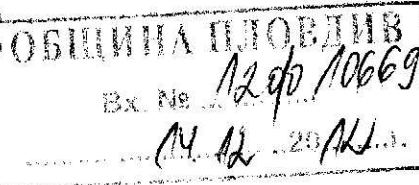 ОБЩИНА ПЛОВДИВ
Вх. № 12ф0 10669
14 12 2012